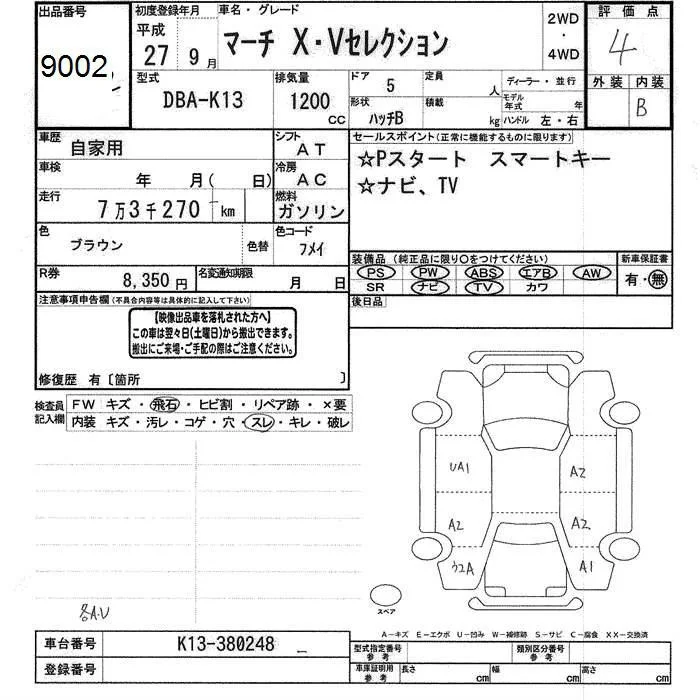 出品番号
9002
初度登録年月
平成
27 9月
車名・グレード
マーチ X・Vセレクション
2WD
・
4WD
評価点
4
外装 内装
B
型式
DBA-K13
排気量
1200
CC
ドア
5
定員
人
ディーラー・並行
形状
ハッチB
積載
kg
モデル年式
年
ハンドル 左・右
車歴
自家用
シフト
AT
車検
年 月( 日)
冷房
AC
走行
7万3千270 km
燃料
ガソリン
色
ブラウン
色替
色コード
フメイ
R券
8,350円
名変通知期限
月 日
セールスポイント(正常に機能するものに限ります)
☆Pスタート スマートキー
☆ナビ、TV
装備品(純正品に限り○をつけてください)
PS PW ABS エアB AW
SR ナビ TV カワ
新車保証書
有・無
後日品
注意事項申告欄(不具合内容等は具体的に記入して下さい)
【映像出品車を落札された方へ】
この車は翌々日(土曜日)から搬出できます。
搬出にご来場・ご手配の際はご注意ください。
修復歴 有〔箇所 〕
検査員
記入欄
FW キズ・飛石・ヒビ割・リペア跡・×要
内装 キズ・汚レ・コゲ・穴・スレ・キレ・破レ
UA1
A2
A2
A2
A1
スペア
A-キズ E-エクボ U-凹み W-補修跡 S-サビ C-腐食 XX-交換済
車台番号
K13-380248
登録番号
型式指定番号
参考
類別区分番号
参考
車庫証明用
参考
長さ
cm
幅
cm
高さ
cm